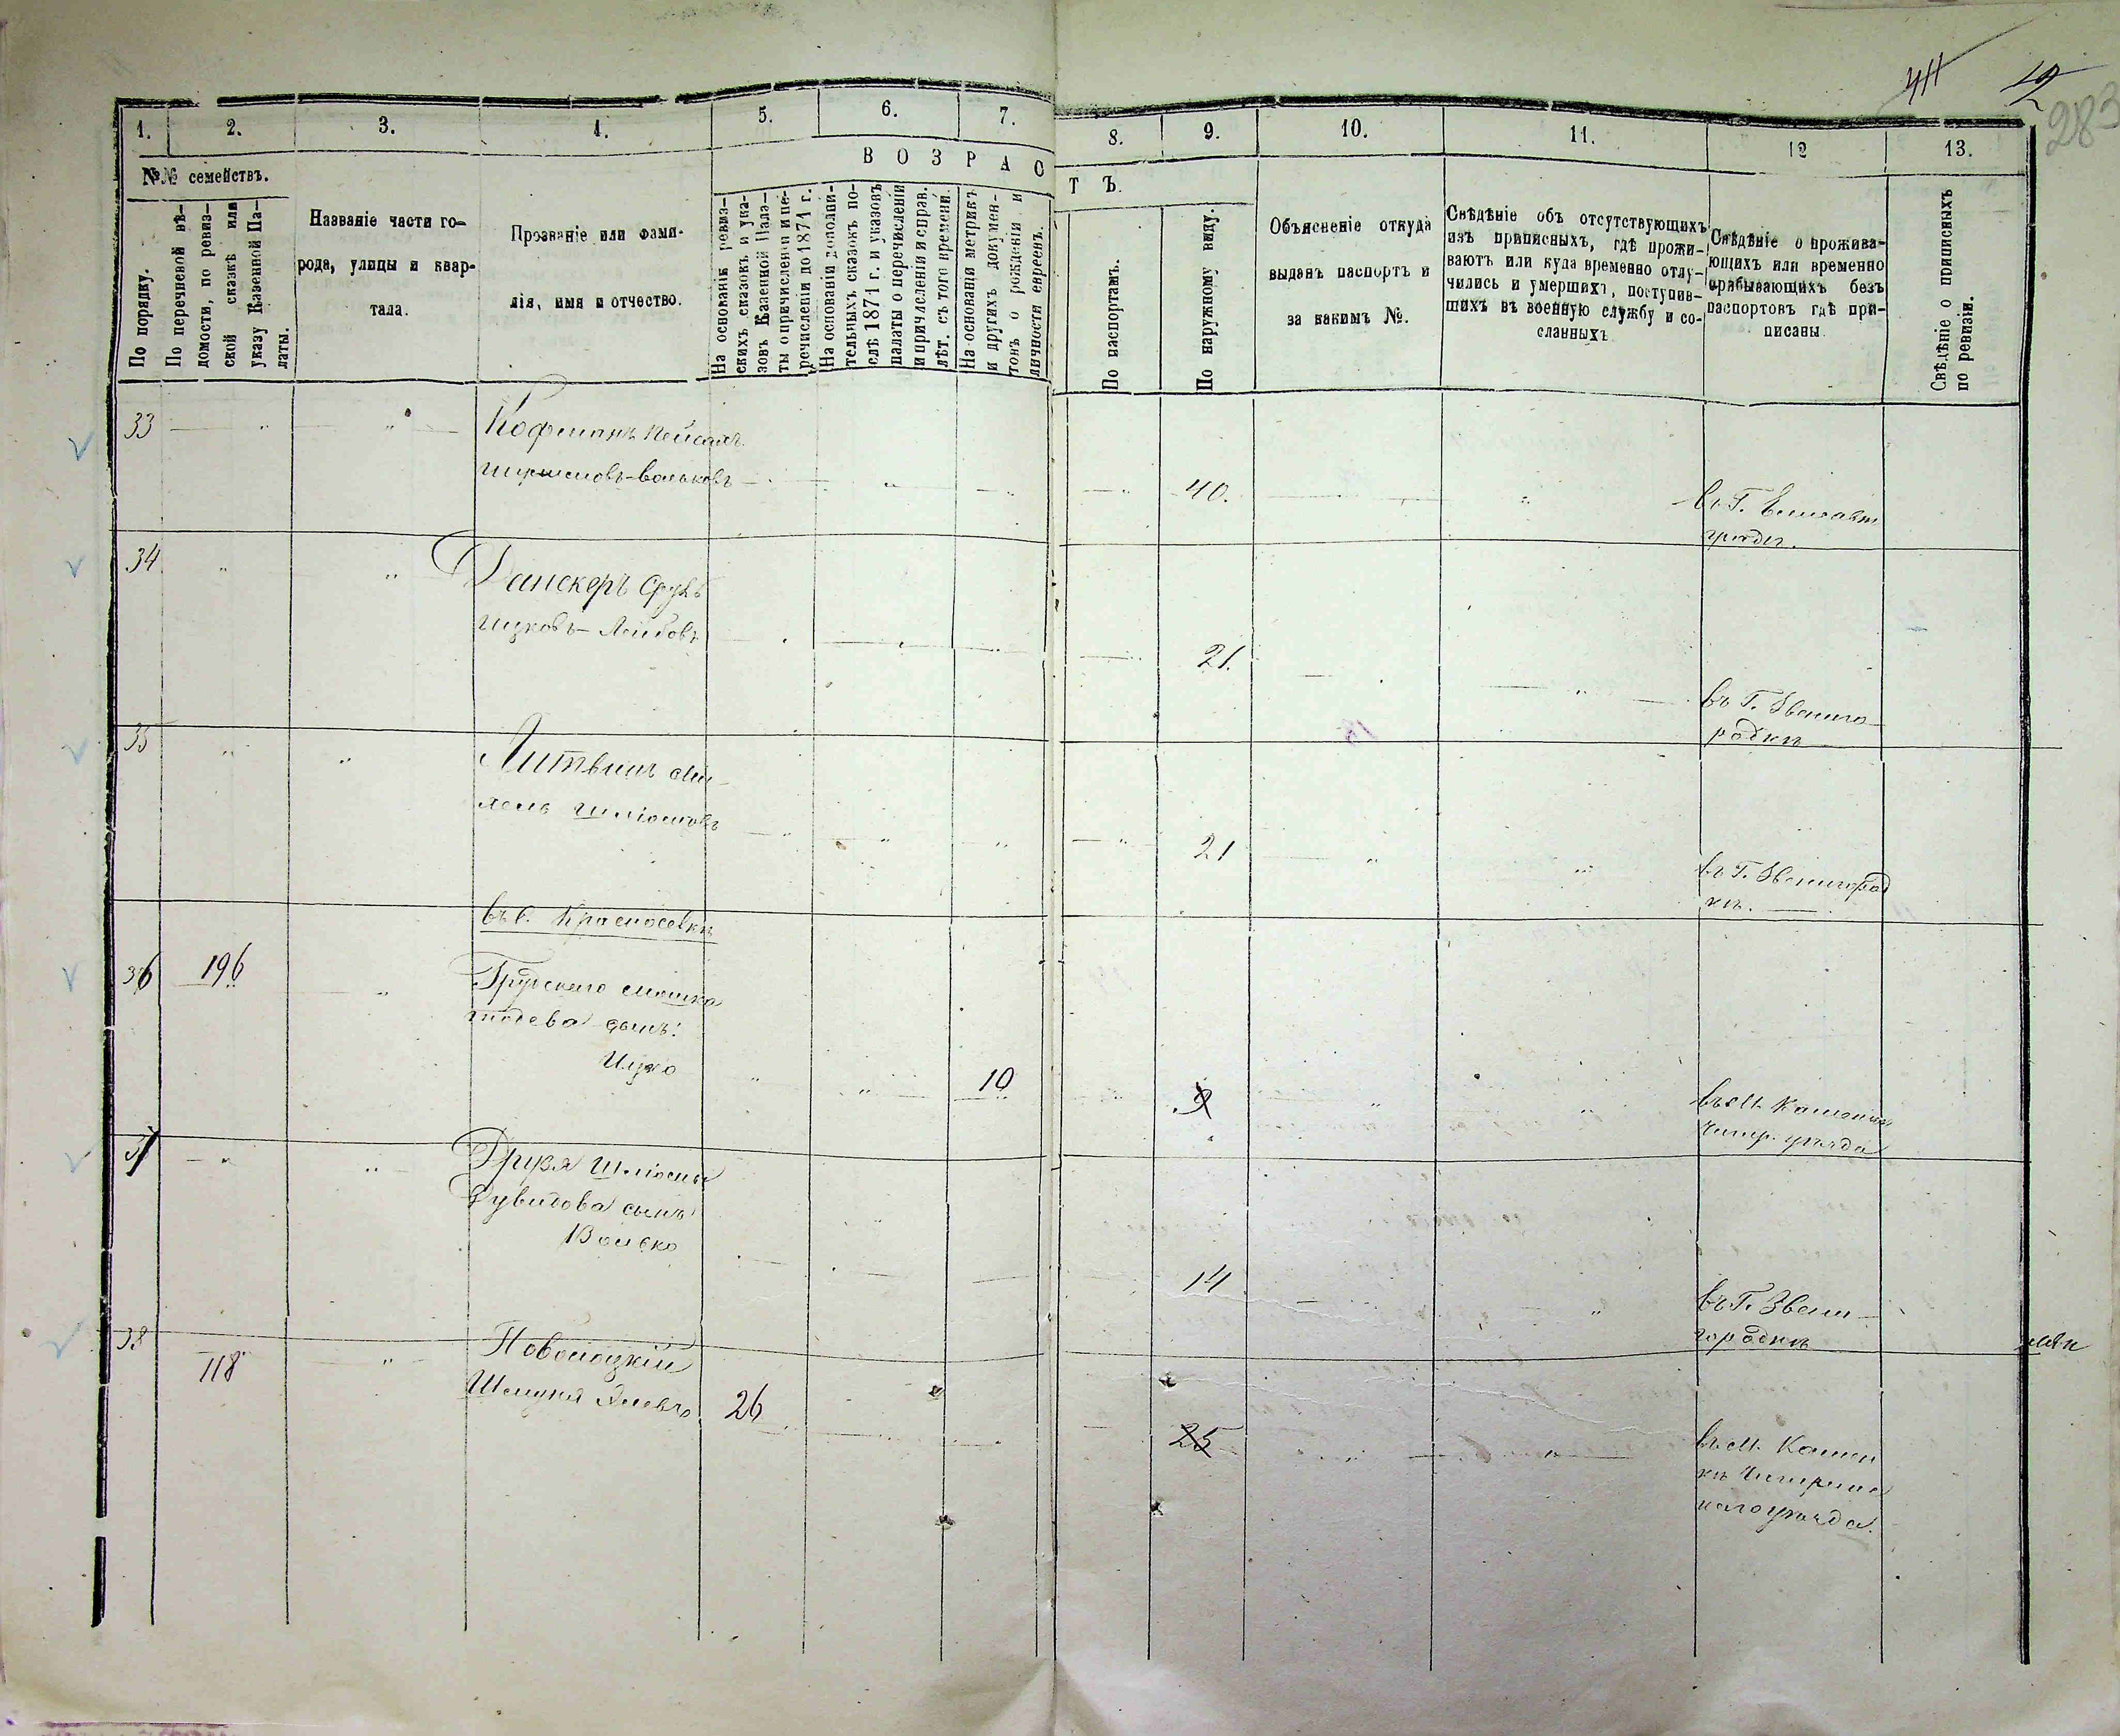 411 12
283
1. 2. 3. 4. 5. 6. 7. 8. 9. 10. 11. 12 13.
№№ семействъ.
По порядку.
По перечневой вѣ-
домости, по ревиз-
ской сказкѣ или
указу Казенной Па-
латы.
Названіе части го-
рода, улицы и квар-
тала.
Прозваніе или фами-
лія, имя и отчество.
ВОЗРАСТЪ.
На основаніи ревиз-
скихъ сказокъ и ука-
зовъ Казенной Пала-
ты о причисленіи и пе-
речисленіи до 1871 г.
На основаніи дополни-
тельныхъ сказокъ по-
слѣ 1871 г. и указовъ
палаты о перечисленіи
и причисленіи и справ.
лѣт. съ того времени.
На основаніи метрикъ
и другихъ докумен-
товъ о рожденіи и
личности евреевъ.
По паспортамъ.
По наружному виду.
Объясненіе откуда
выданъ паспортъ и
за какимъ №.
Свѣдѣніе объ отсутствующихъ
изъ приписныхъ, гдѣ прожи-
ваютъ или куда временно отлу-
чились и умершихъ, поступив-
шихъ въ военную службу и со-
сланныхъ
Свѣдѣніе о прожива-
ющихъ или временно
прабывающихъ безъ
паспортовъ гдѣ при-
писаны.
Свѣдѣніе о приписныхъ
по ревизіи.
33 Кофманъ Пейсахъ
-Вольковъ 40. въ Г. Елисавет
градѣ.
34 Данскеръ Сруль
Ицковъ-Лейбовъ 21. въ Г. Звениго
родкѣ
35 Литвинъ
Шліомовъ 21 въ Г. Звенигород
кѣ.
въ с. Красноселкѣ
36 196 Грудскаго Мошка
сынъ:
Ицко 10 9 въ М. Каменкѣ
Чигир. уѣзда
37 Друзя Шліомы
Дувидова сынъ
Волько 14 въ Г. Звени
городкѣ
38 118 Новолоцкій
26 25 въ М. Камен
кѣ Чигирин
скаго уѣзда.